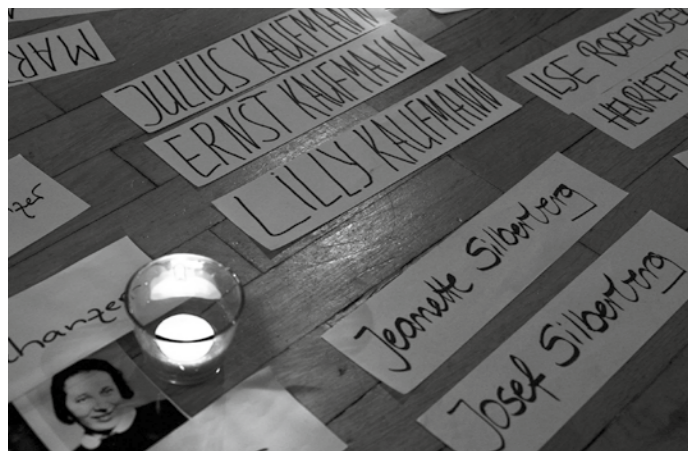 JULIUS KAUFMANN
ERNST KAUFMANN
LILLY KAUFMANN
ILSE
HENRIETTE
Jeanette Silberberg
Josef Silberberg